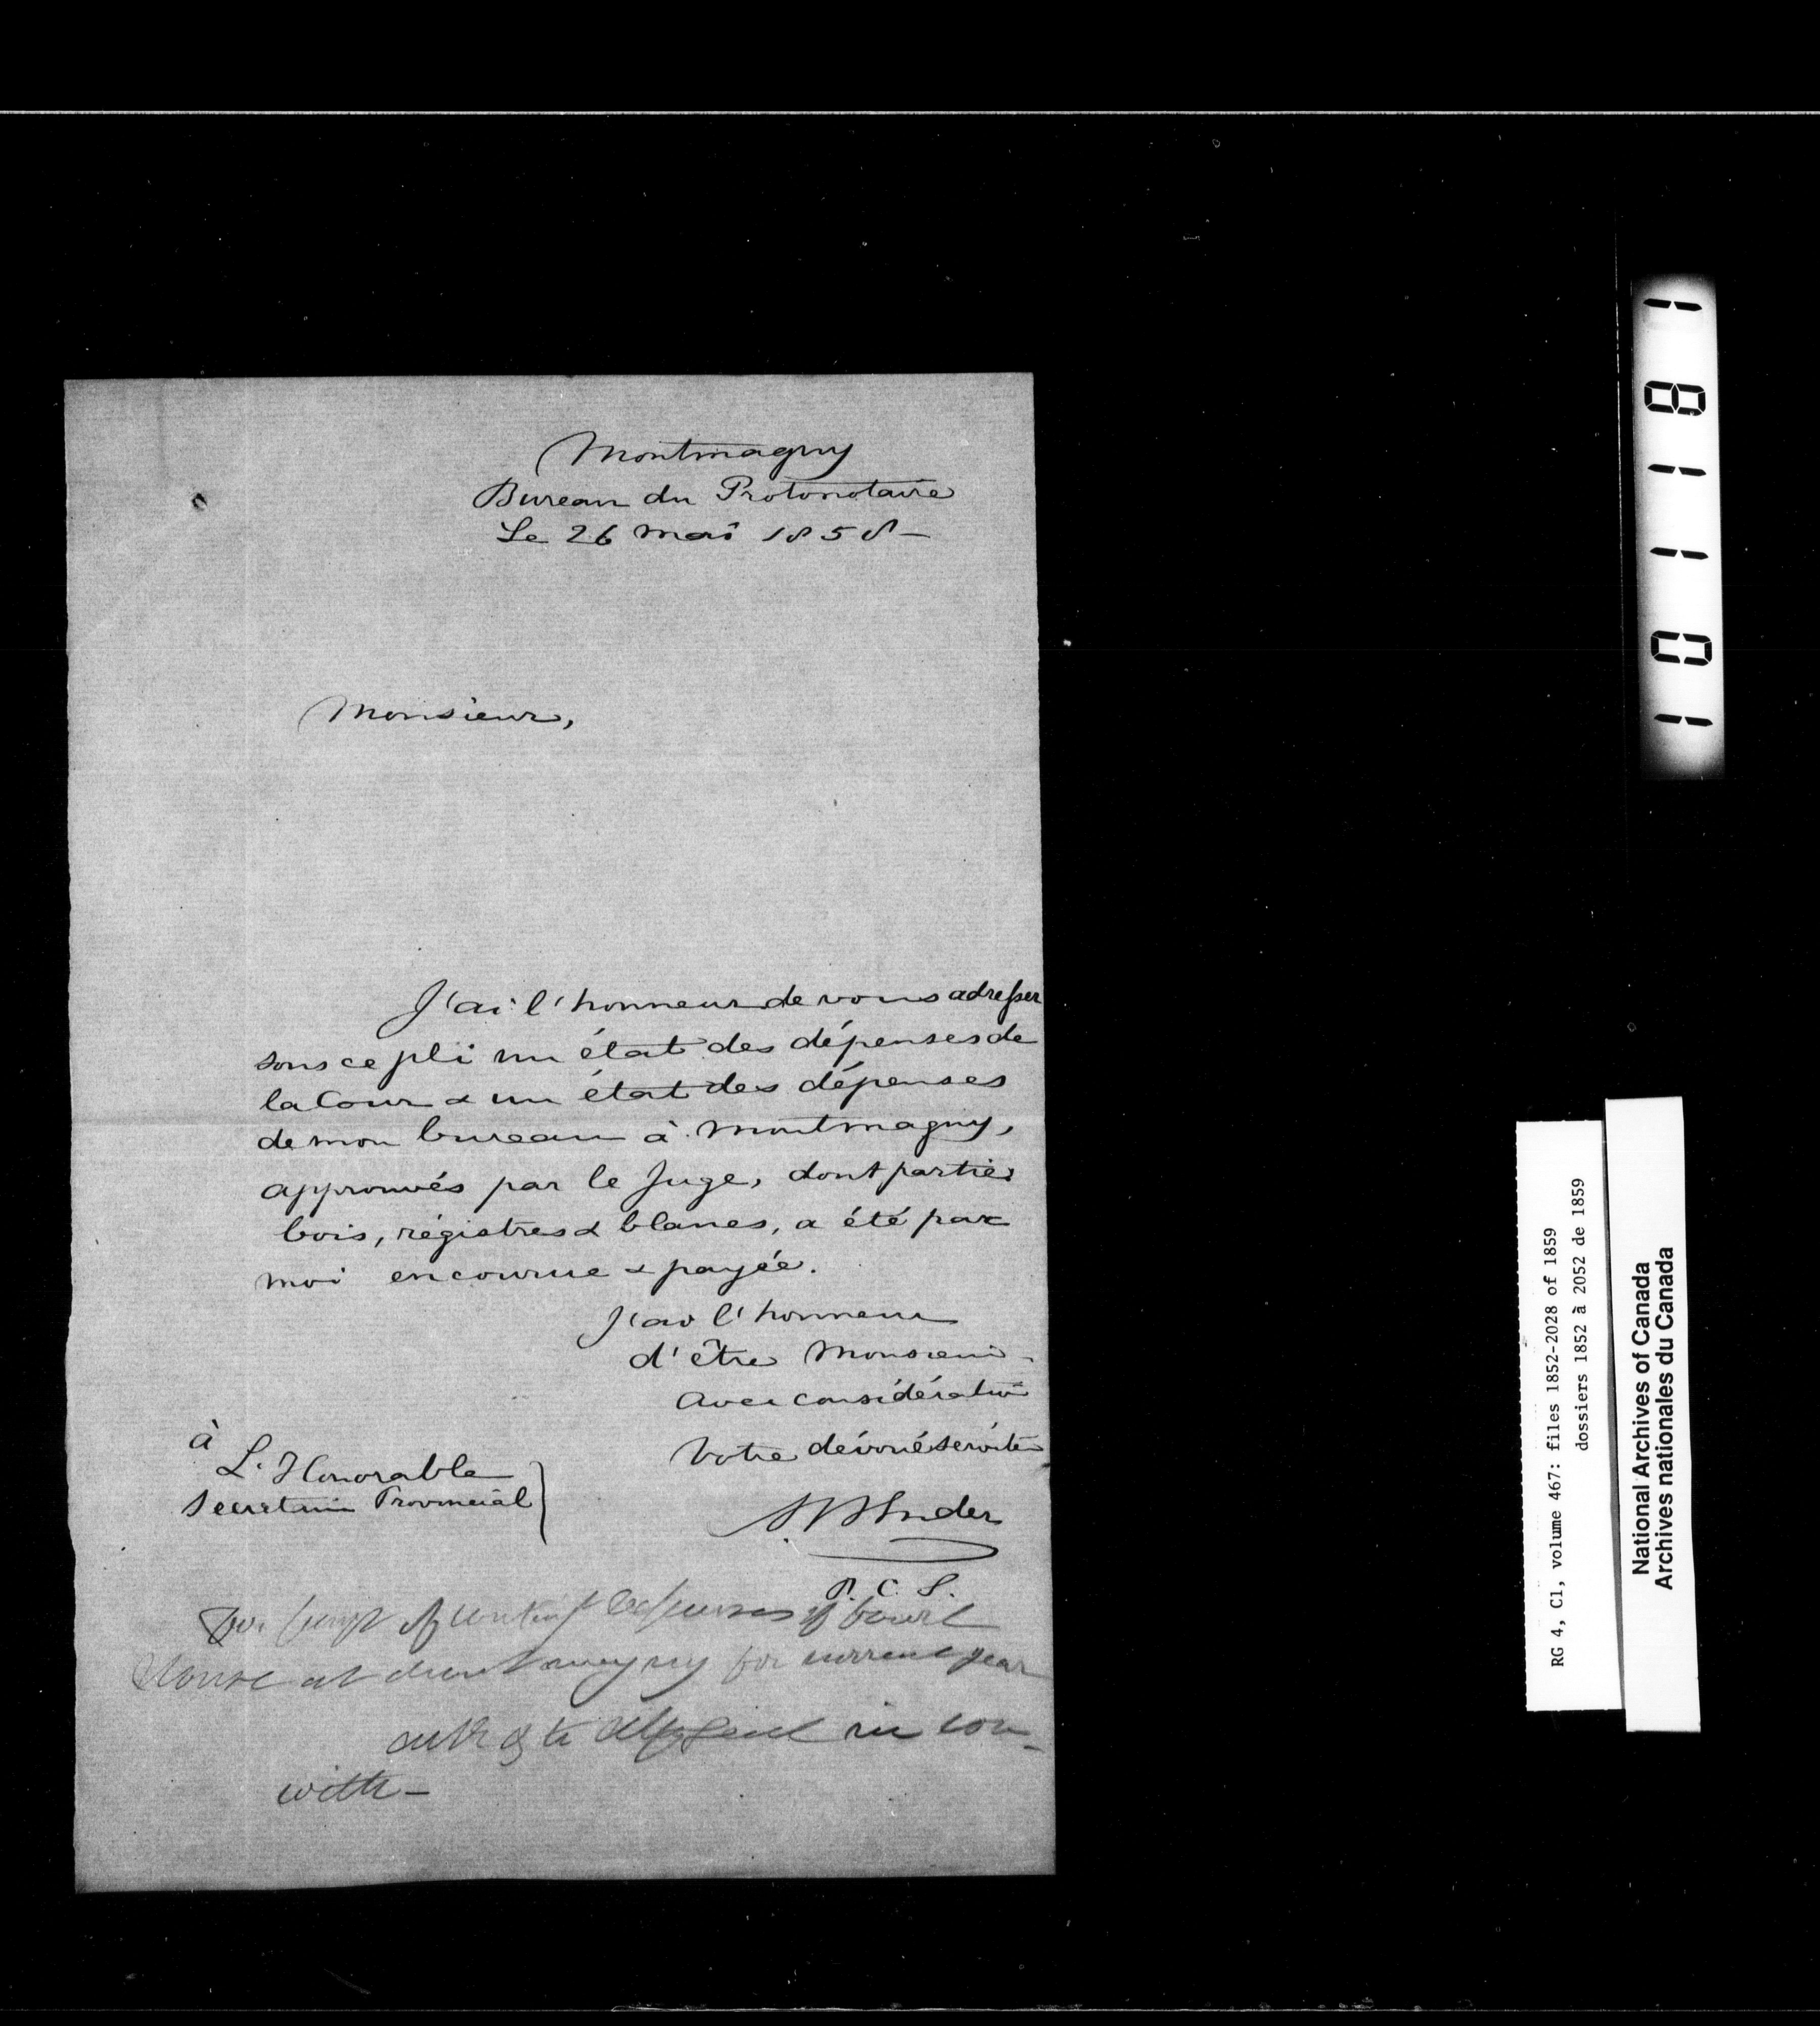 Montmagny
Bureau du Protonotaire
Le 26 mai 1858 –
Monsieur,
J'ai l'honneur de vous adresser
sous ce pli un état des dépenses de
la Cour & un état des dépenses
de mon bureau à Montmagny,
approuvés par le Juge, dont partie,
bois, régistres & blancs, a été par
moi encourue & payée.
J'ai l'honneur
d'être Monsieur
avec considération
Votre dévoué servite
à
L'Honorable
Secretaire Provincial
P. C. S.
of Court
House at for current year
in con-
with –
1 0 1 1 8 1
RG 4, C1, volume 467: files 1852-2028 of 1859
dossiers 1852 à 2052 de 1859
National Archives of Canada
Archives nationales du Canada